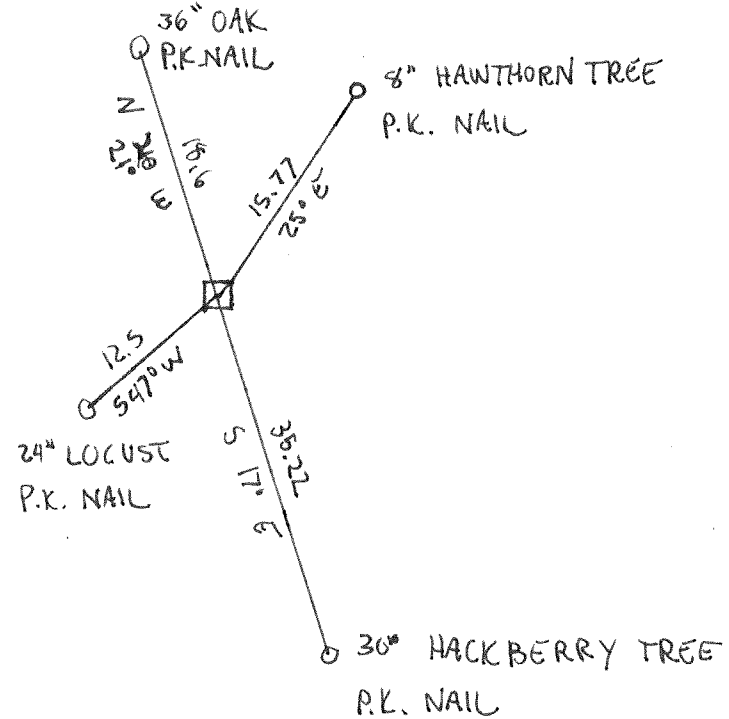 36" OAK
P.K. NAIL
8" HAWTHORN TREE
P.K. NAIL
N
W
15.77
25° E
12.5
S47°W
24" LOCUST
P.K. NAIL
S 17° E
30" HACKBERRY TREE
P.K. NAIL